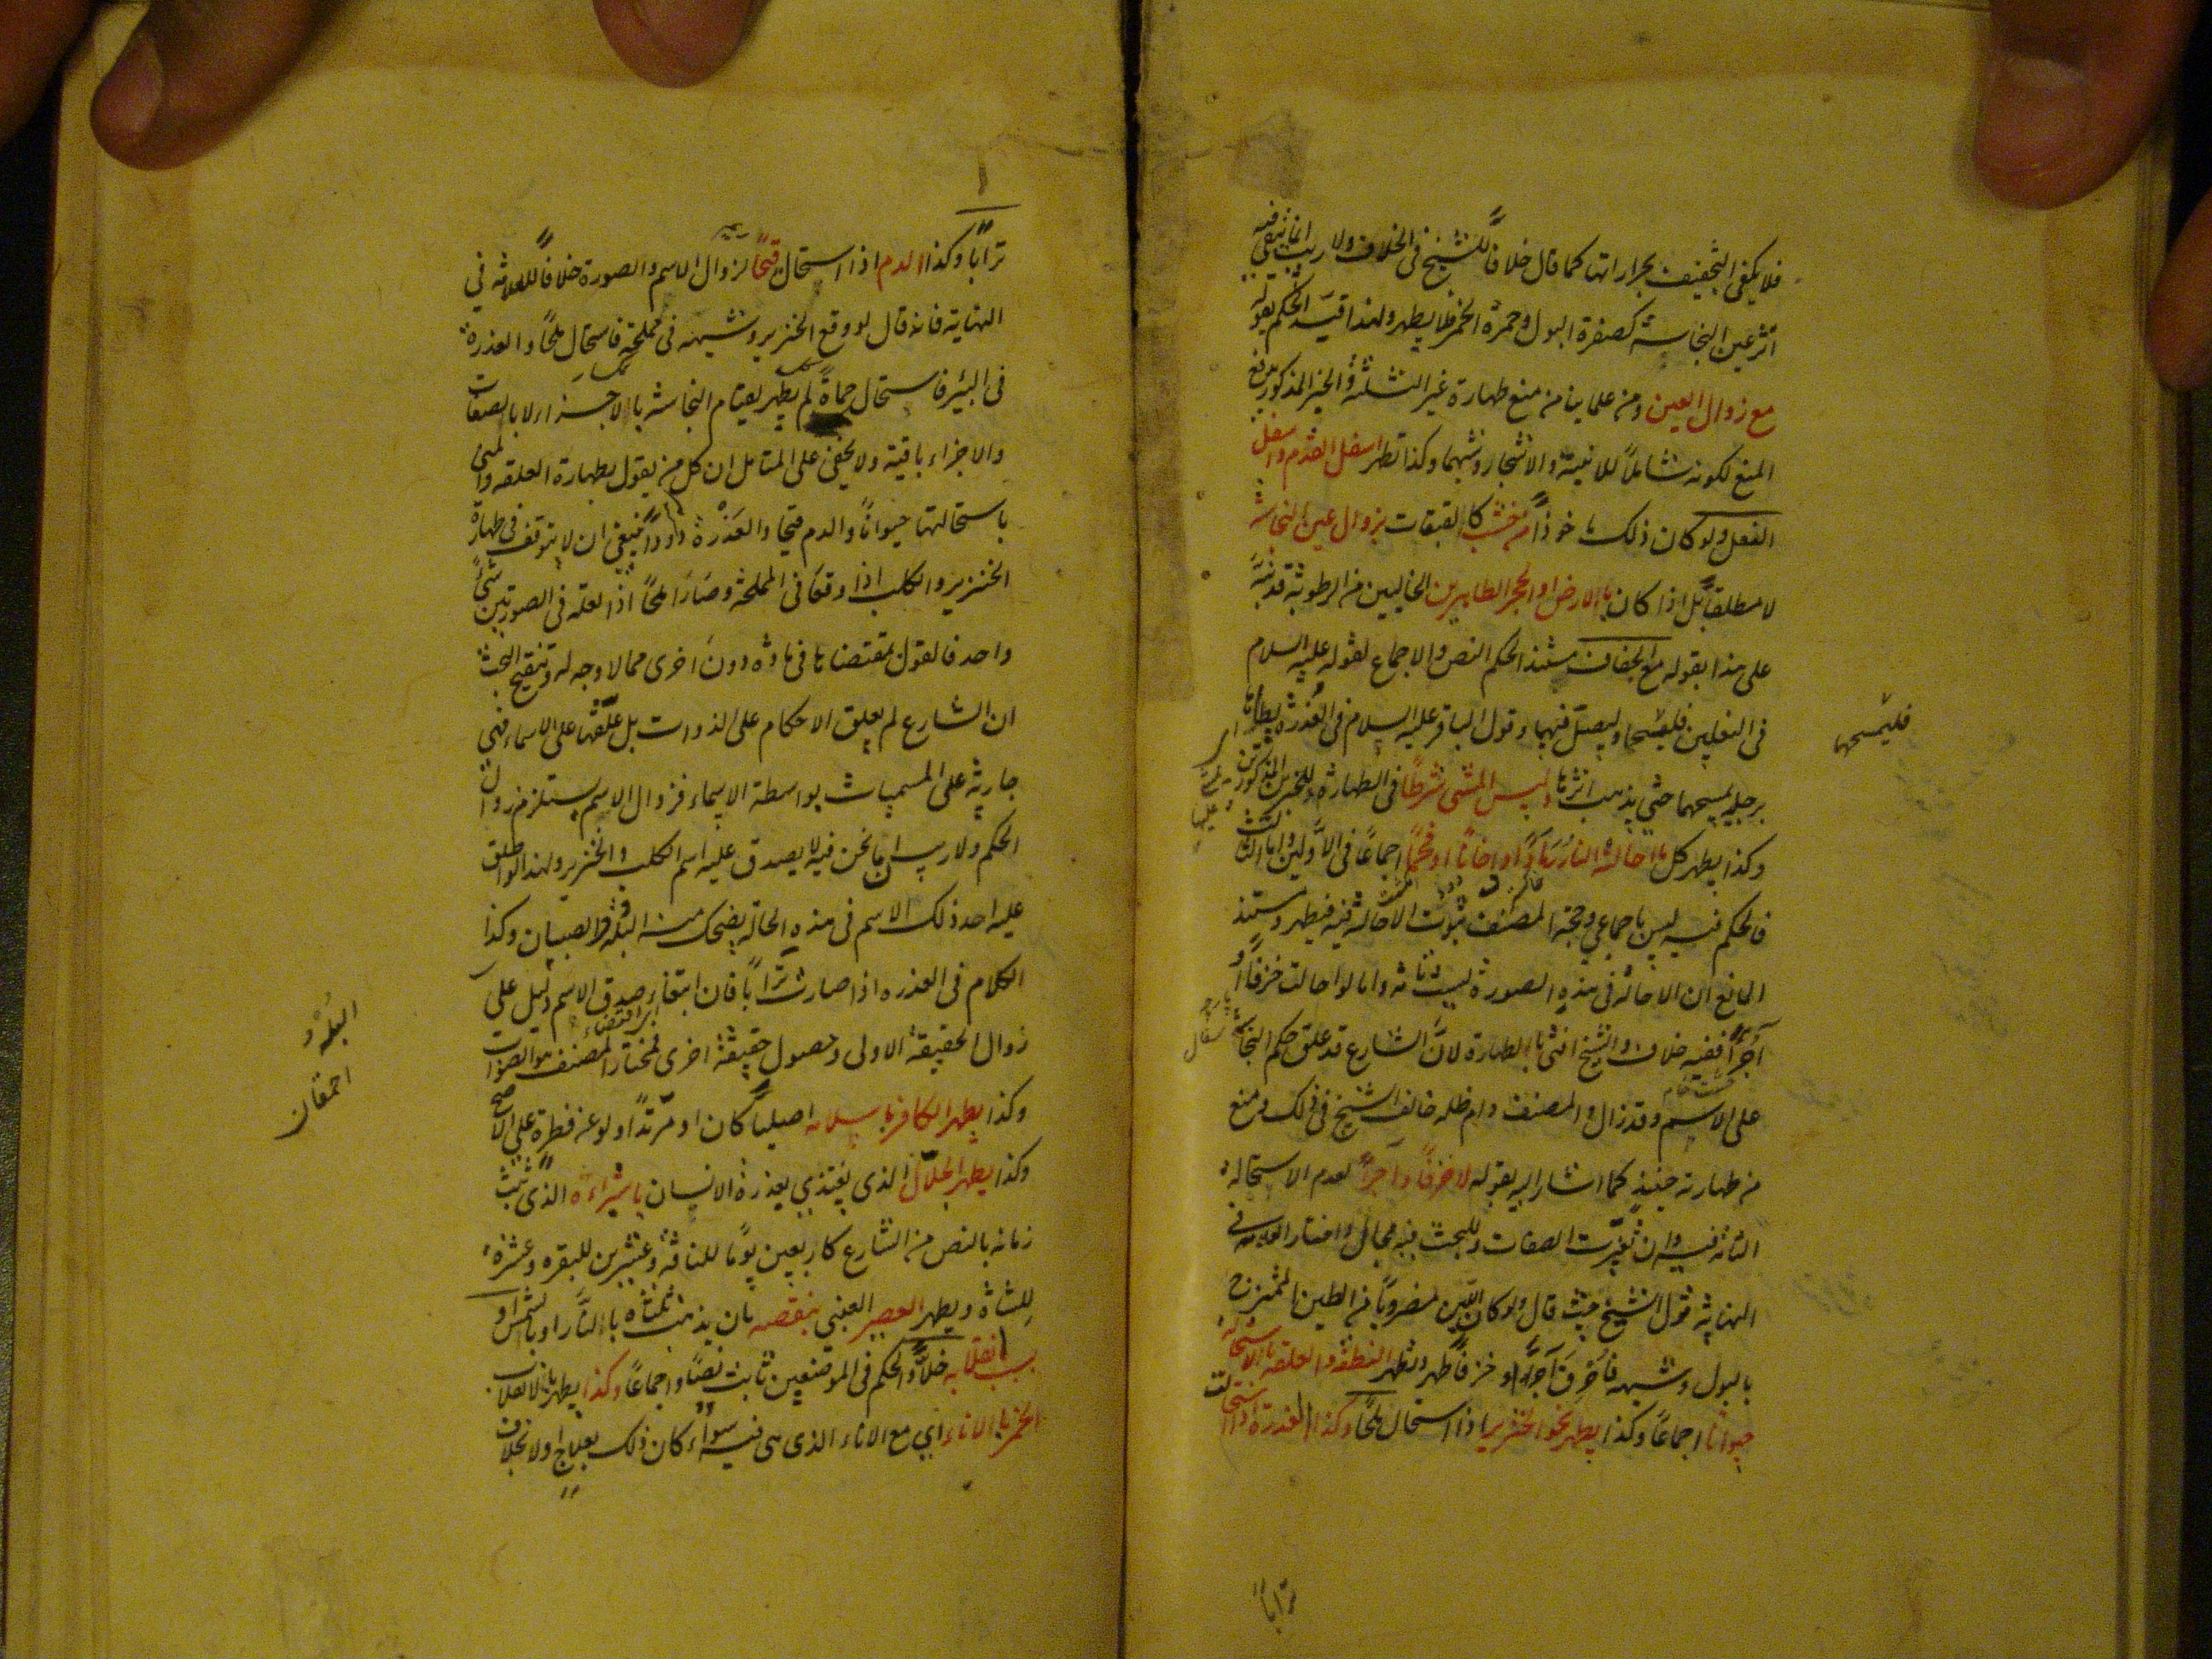 فلا يكفى التجفيف بحرارتها كما قال خلافاً للشيخ فى الخلاف ولا ريب انما بقى فيه
اثر عين النجاسة كصفرة البول وحمرة الخمر فلا يطهر ولهذا قيد الحكم بقوله
مع زوال العين ومن علمائنا من منع طهارة غير الثلثة والخبر المذكور يدفع
المنع لكونه شاملاً للابنية والاشجار وشبهها وكذا تطهر اسفل القدم واسفل
النعل ولو كان ذلك ماخوذاً من خشب كالقبقاب بزوال عين النجاسة
لا مطلقاً بل اذا كان بالارض او الحجر الطاهرين الخاليين من الرطوبة قد نبه
على هذا بقوله مع الجفاف مستند الحكم النص والاجماع لقوله عليه السلام
فى النعلين فليمسحهما وليصل فيهما وقول الباقر عليه السلام فى العذرة يطاها
برجله يمسحها حتى يذهب اثرها وليس المشى شرطاً فى الطهارة للخبرين المذكورين
وكذا يطهر كل ما احالته النار رماداً او دخاناً او فحماً اجماعاً فى الاولين واما الثالث
فالحكم فيه ليس باجماعى وحجة المصنف ثبوت الاحالة فيه فيطهر ومستند
المانع ان الاحالة فى هذه الصورة ليست تامة واما لو احالت خزفاً او
آجراً ففيه خلاف والشيخ افتى بالطهارة لان الشارع قد علق حكم النجاسة
على الاسم وقد زال والمصنف دام ظله خالف الشيخ فى ذلك ومنع
من طهارته حينئذ كما اشار اليه بقوله لا خزفاً وآجراً لعدم الاستحالة
التامة فيه وان تغيرت الصفات وللبحث فيه مجال واختار العلامة فى
النهاية قول الشيخ حيث قال ولو كان اللبن مضروباً من الطين الممتزج
بالبول وشبهه فاحرق آجراً او خزفاً طهر وتطهر النطفة والعلقة بالاستحالة
حيواناً اجماعاً وكذا يطهر نحو الخنزير اذا استحال ملحاً وكذا العذرة اذا استحالت
تراباً
فليمسحهما
تراباً وكذا الدم اذا استحال قيحاً لزوال الاسم والصورة خلافاً للعلامة فى
النهاية فانه قال لو وقع الخنزير وشبهه فى مملحة فاستحال ملحاً والعذرة
فى البئر فاستحال حماة لم يطهر لقيام النجاسة بالاجزاء لا بالصفات
والاجزاء باقية ولا يخفى على المتامل ان كل من يقول بطهارة العلقة والمنى
باستحالتها حيواناً والدم قيحاً والعذرة دوداً ينبغى ان لا يتوقف فى طهارة
الخنزير والكلب اذا وقعا فى المملحة وصارا ملحاً اذ العلة فى الصورتين شئ
واحد فالقول بمقتضاها فى مادة دون اخرى مما لا وجه له وتنقيح البحث
ان الشارع لم يعلق الاحكام على الذوات بل علقها على الاسماء فهى
جارية على المسميات بواسطة الاسماء فزوال الاسم يستلزم زوال
الحكم ولا ريب ان ما نحن فيه لا يصدق عليه اسم الكلب والخنزير ولهذا لو اطلق
عليه احد ذلك الاسم فى هذه الحالة يضحك منه البله والصبيان وكذا
الكلام فى العذرة اذا صارت تراباً فان انتفاء صدق الاسم دليل على
زوال الحقيقة الاولى وحصول حقيقة اخرى فمختار المصنف هو الصواب
وكذا يطهر الكافر باسلامه اصلياً كان او مرتداً ولو عن فطرة على الاصح
وكذا يطهر الجلال الذى يغتذى بعذرة الانسان باستبراءه الذى ثبت
زمانه بالنص من الشارع كاربعين يوماً للناقة وعشرين للبقرة وعشرة
للشاة ويطهر العصير العنبى بنقصه بان يذهب ثلثاه بالنار او بالشمس او
بسبب انقلابه خلاً والحكم فى الموضعين ثابت نصاً واجماعاً وكذا يطهر بالانقلاب
الخمر بالاناء اي مع الاناء الذى هى فيه سواء كان ذلك بعلاج او لا بخلاف
البله و
احمقان